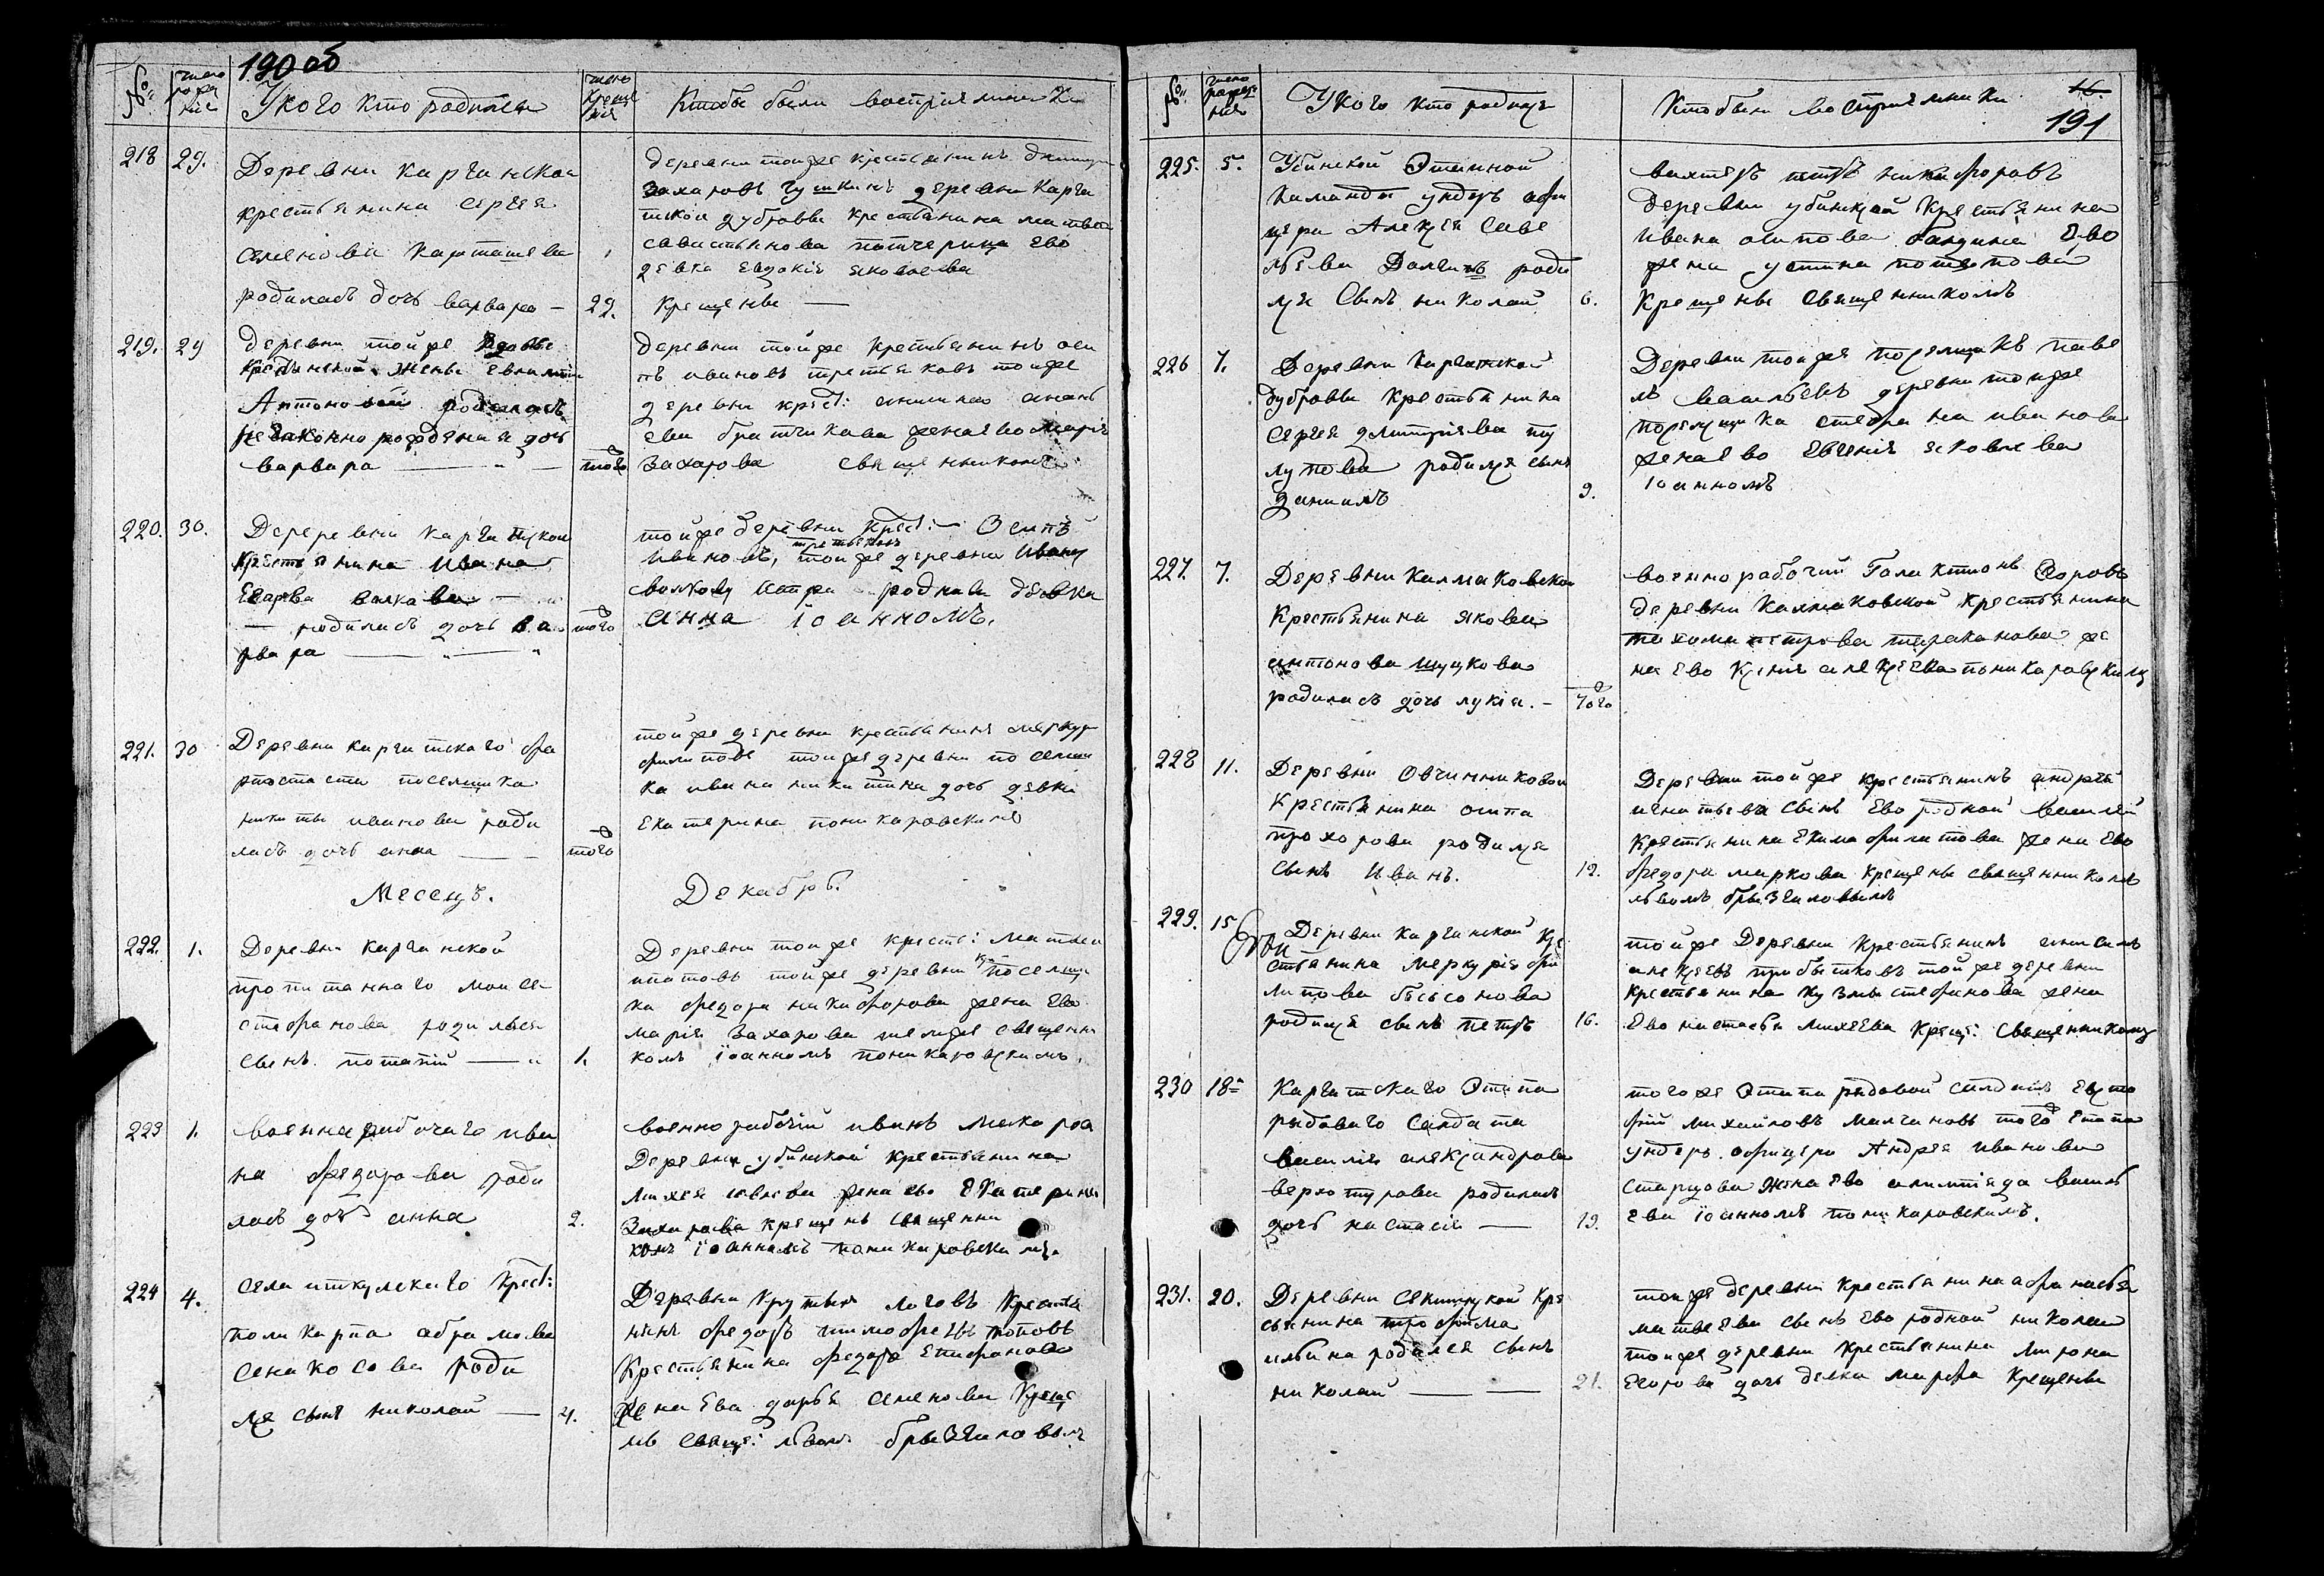 190 об
№
число рожде
ния
У кого кто родился
число
креще
ния
Кто были восприемники
218
29.
Деревни Каргинской
крестьянина Сергея
Семенова Карташева
родилась дочь варвара —
29.
деревни тойже крестьянинъ
Захаровъ деревни Карга
тской дубровы крестьянина матвея
савастьянова потчерица Ево
девка Евдокія яковлева
Крещены —
219.
29
деревни тойже вдовы
Крестьянской жены
Антоновой родилась
незаконно рожденная дочь
варвара —
того
деревни тойже крестьянинъ оси
пъ ивановъ третьяковъ тойже
деревни крест:
ева братчикова жена ево марія
Захарова священникомъ
220.
30.
Дереревни Каргатской
Крестьянина Ивана
Егорова валкова —
— родилась дочь ва
рвара —
того
тойже деревни крест: Осипъ
третьяковъ
Ивановъ, тойже деревни Ивана
родная девка
Анна іоанномъ.
221.
30
Деревни Каргатскаго фа
рпостасти поселщика
никиты иванова роди
лась дочь анна —
того
тойже деревни крестьянинъ меркур
филиповъ тойже деревни поселщи
ка ивана никитина дочь девка
Екатерина поникаровскимъ
Месецъ.
Декабрь.
222.
1.
Деревни Каргинской
пропитаннаго моисе
стефанова родился
сынъ потапій —
1.
Деревни тойже крест: Матвей
ипатовъ тойже деревни поселщи
ка федора никифорова жена Ево
марія Захарова священни
комъ іоанномъ поникаровскимъ.
223
1.
военнарабочаго ива
на федорова роди
лась дочь анна
2.
военнорабочій иванъ Макаров
Деревни убинской крестьянина
михея жена ево Екатерина
Захарова крещенъ священни
комъ іоанномъ поникаровскимъ.
224
4.
села иткулскаго крест:
поликарпа абрамова
Сенакосова роди
лся сынъ николай —
4.
Деревни крутых логовъ Крестья
нинъ федоръ тимофеевъ поповъ
Крестьянина федора Епифанова
жена Ева дарья семенова Креще
нъ свяще: львомъ брызгаловымъ
№
число
рожде
ния
У кого кто родился
Кто были восприемники
16.
191
225.
5.
Убинской Этапной
Каманды ундеръ афи
цера Алексея Саве
льева роди
лся Сынъ николай
6.
вахтеръ петръ никифоровъ
деревни убинской крестьянина
Ивана осипова Ево
жена устина потапова
Крещены священникомъ
226
7.
Деревни Каргатской
дубровы крестьянина
Сергея дмитріева
родился сынъ
данилъ
9.
Деревни тойже поселщикъ паве
лъ васильевъ деревни тойже
поселщика стефана иванова
жена Ево Евгенія яковлева
іоанномъ
227.
7.
Деревни Калмаковской
Крестьянина якова
антонова щукова
родилась дочь лукія. —
того
военнорабочій Галактіонъ
деревни Калмаковской крестьянина
петрова тараканова же
на Ево Ксенія алексеева поникаровским
228
11.
Деревни Овчинниковой
Крестьянина осипа
прохорова родился
сынъ Иванъ.
12.
Деревни тойже крестьянинъ андрей
игнатьева сынъ Ево родной василей
крестьянина Екима филипова жена Ево
федора маркова крещены священникомъ
львомъ брызгаловымъ
229.
15
Деревни Каргинской Кре
стьянина Меркурія фи
липова
родился сынъ петръ
16.
тойже Деревни Крестьянинъ
алексеевъ прибытковъ тойже деревни
крестьянина кузмы стефанова жена
Ево настасья михеева крещ: Священникомъ
230
18
Каргатскаго Этапа
рядоваго Салдата
василія александрова
верхотурова родилась
дочь настасія —
19.
тогоже Этапа рядовой салдатъ
михайловъ малгановъ того Етапа
ундеръ офицера Андрея иванова
старцова жена Ево алимпіяда василь
ева іоанномъ поникаровскимъ.
231.
20.
Деревни Секитской кре
сьянина трофима
ильина родился сынъ
николай —
21.
тойже деревни крестьянина афанасья
матвеева сынъ Ево родной николай
тойже деревни крестьянина мирона
Егорова дочь девка марфа крещены